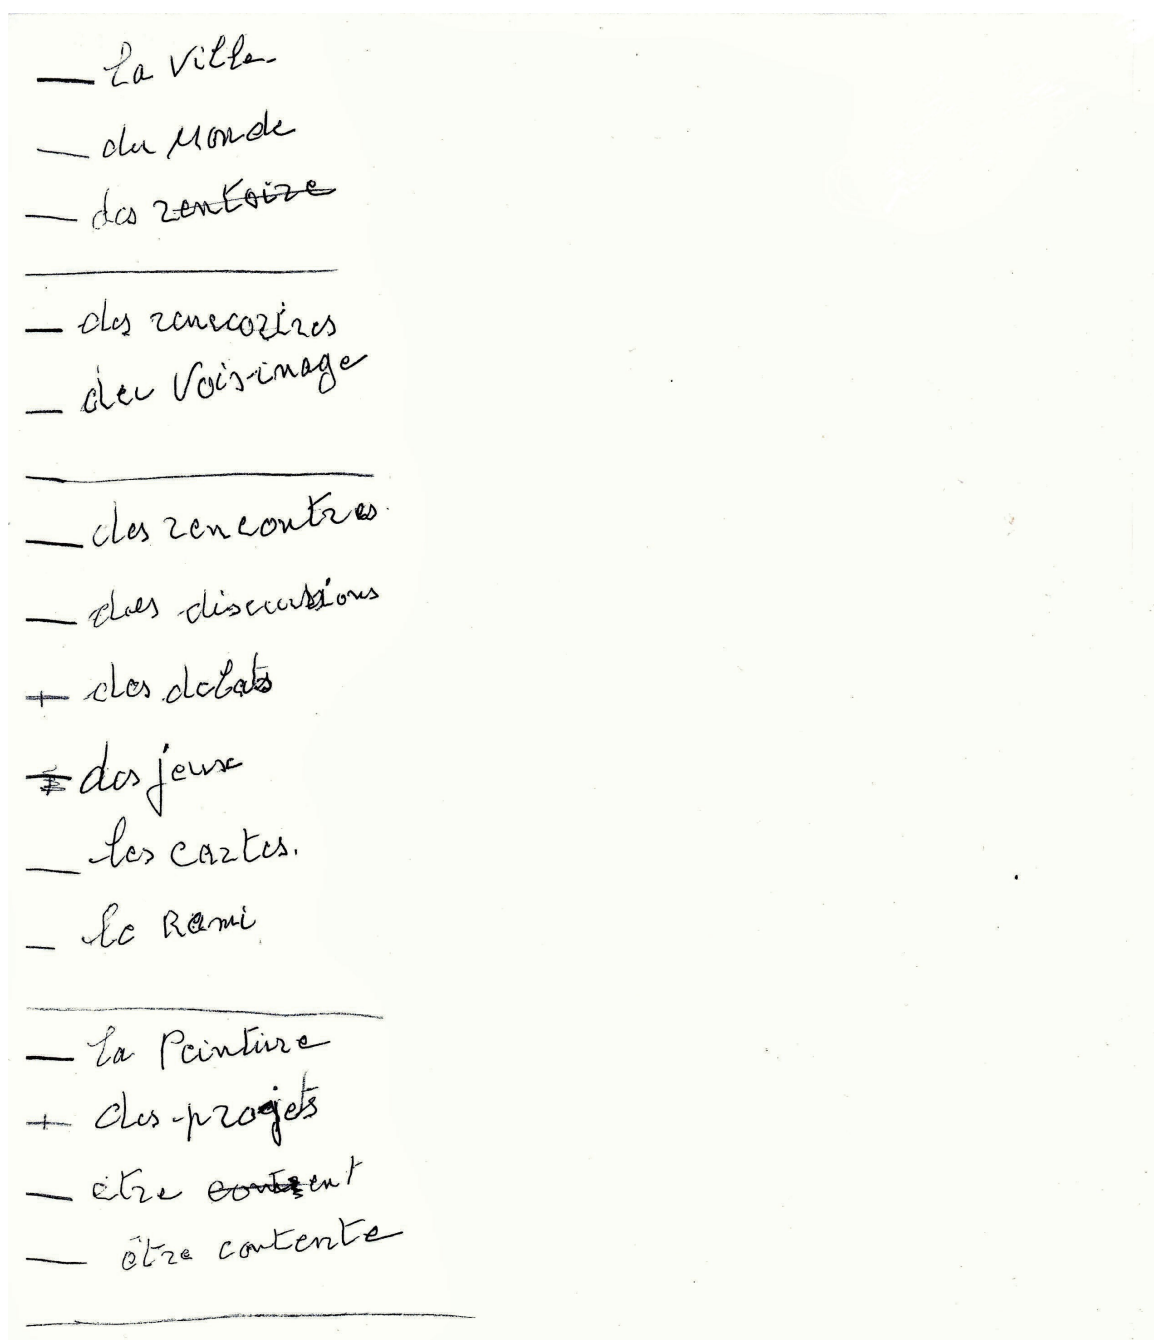 — la ville
— du Monde
— des rentoire
— des renecorires
— du Vois-inage
— des rencontres.
— des discussions
+ des debats
— des jeux
— les cartes.
— le Rami
— la Peinture
+ des projets
— etre content
— être contente